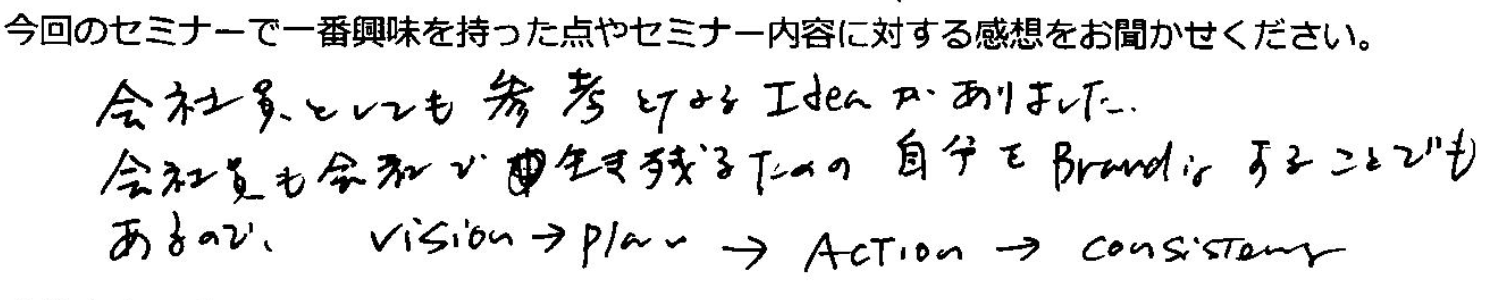 今回のセミナーで一番興味を持った点やセミナー内容に対する感想をお聞かせください。
会社員としても参考となるIdeaがありました.
会社員も会社で生き残るための自分をBrandingすることでも
あるので、 vision→plan → ACTION → consistency